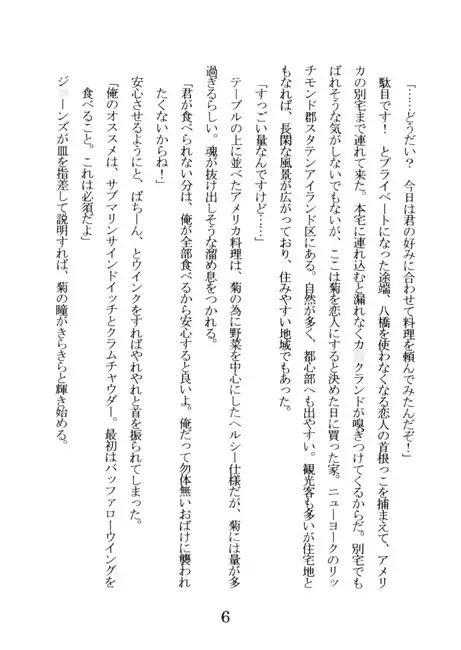 「……どうだい？　今日は君の好みに合わせて料理を頼んでみたんだぞ！」
　駄目です！　とプライベートになった途端、八橋を使わなくなる恋人の首根っこを捕まえて、アメリ
カの別宅まで連れて来た。本宅に連れ込むと漏れなくカ　クランドが嗅ぎつけてくるからだ。別宅でも
ばれそうな気がしないでもないが、ここは菊を恋人にすると決めた日に買った家。ニューヨークのリッ
チモンド郡スタテンアイランド区にある。自然が多く、都心部へも出やすい。観光客も多いが住宅地と
もなれば、長閑な風景が広がっており、住みやすい地域でもあった。
「すっごい量なんですけど……」
　テーブルの上に並べたアメリカ料理は、菊の為に野菜を中心にしたヘルシー仕様だが、菊には量が多
過ぎるらしい。魂が抜け出しそうな溜め息をつかれる。
「君が食べられない分は、俺が全部食べるから安心すると良いよ。俺だって勿体無いおばけに襲われ
たくないからね！」
　安心させるようにと、ばちーん、とウインクをすればやれやれと首を振られてしまった。
「俺のオススメは、サブマリンサインドイッチとクラムチャウダー。最初はバッファローウイングを
食べること。これは必須だよ」
　ジ　ーンズが皿を指差して説明すれば、菊の瞳がきらきらと輝き始める。
6